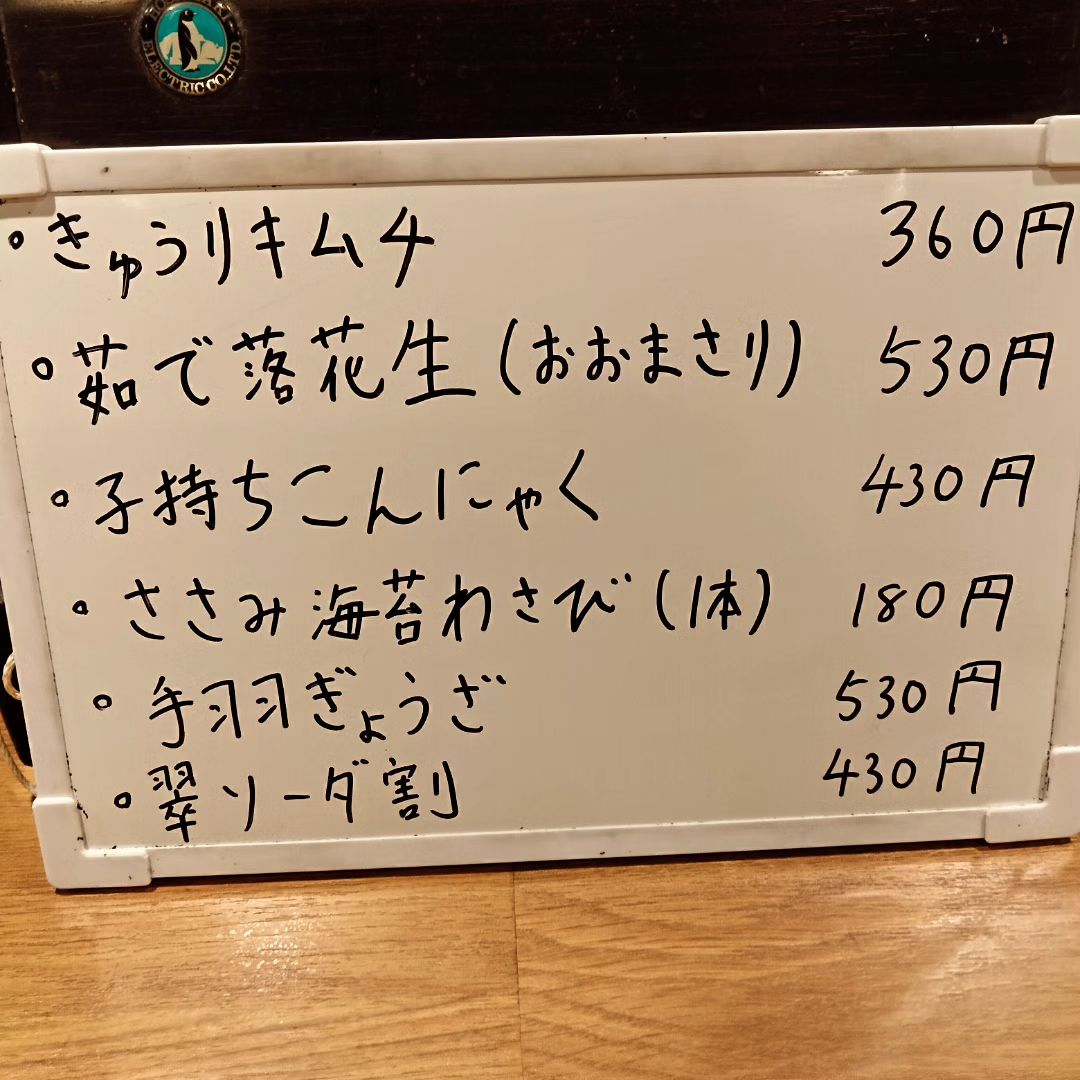 ELECTRIC CO.,LTD.
・きゅうりキムチ 360円
・茹で落花生(おおまさり) 530円
・子持ちこんにゃく 430円
・ささみ海苔わさび(1体) 180円
・手羽ぎょうざ 530円
・翠ソーダ割 430円